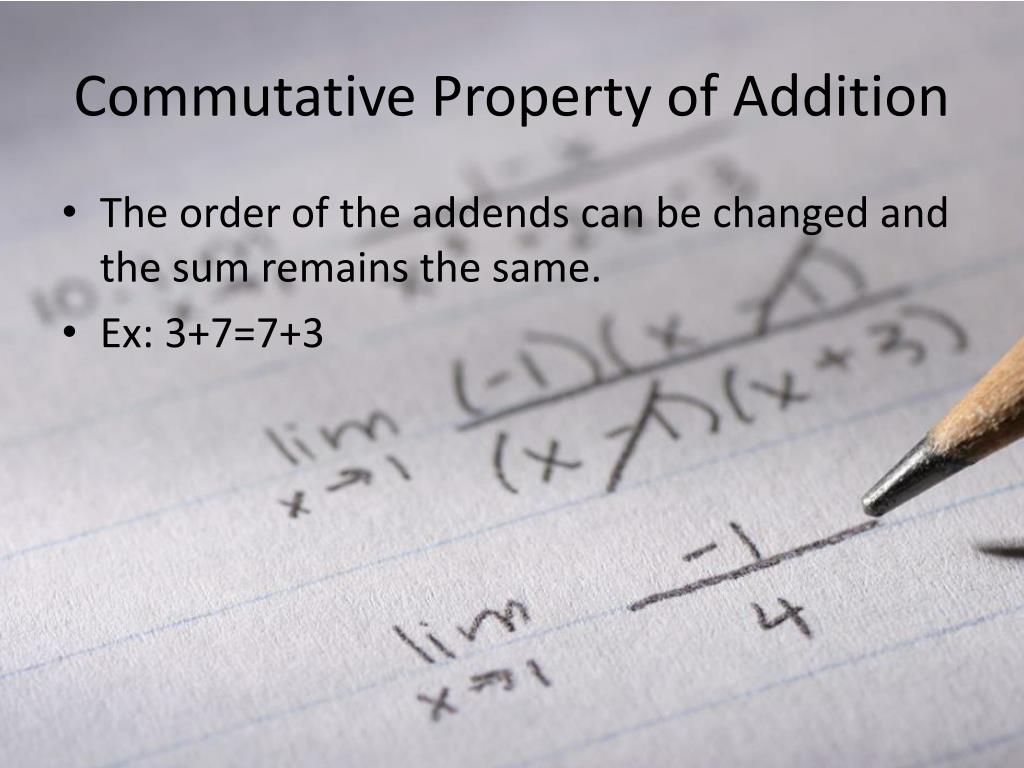 Commutative Property of Addition
• The order of the addends can be changed and
the sum remains the same.
• Ex: 3+7=7+3
lim x→1 (-1)(x-1)
(x-1)(x+3)
lim x→1 -1
4